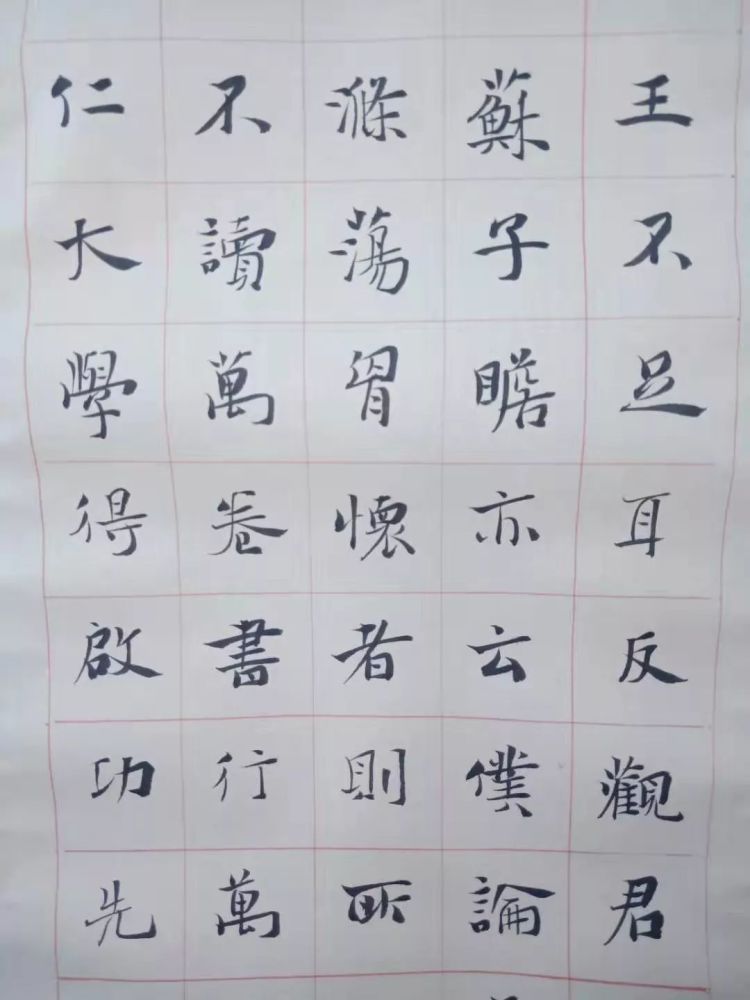 王不足耳反觀君
蘇子瞻亦云僕論
滌蕩胷懷者則所
不讀萬卷書行萬
仁大學得啟功先